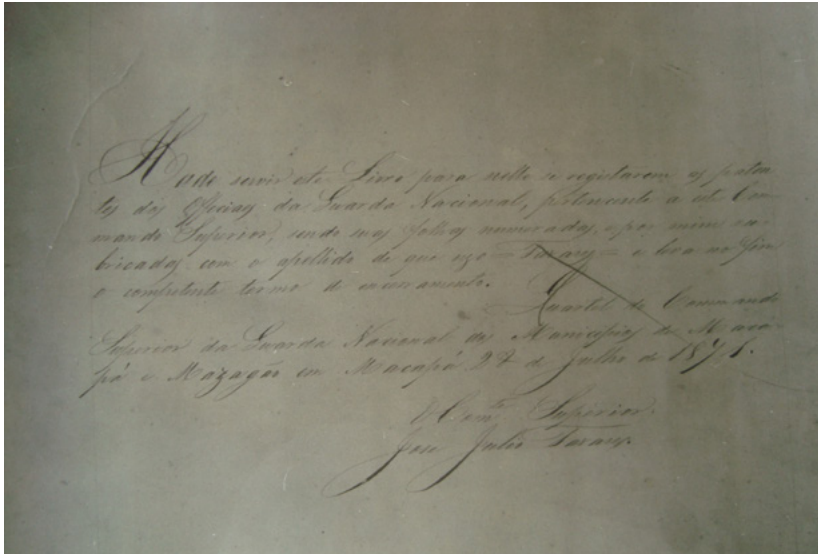 Hade servir este Livro para nelle se registarem as paten
tes dos Officiaes da Guarda Nacional, pertencente a este Com
mando Superior, sendo suas folhas numeradas, e por mim ru
bricadas com o apellido de que uzo = Tavares = e leva no fim
o competente termo de encerramento. Quartel do Commando
Superior da Guarda Nacional dos Municipios de Maca
pá e Mazagão em Macapá 27 de Julho de 1871.
O Comte Superior.
José Julio Tavares